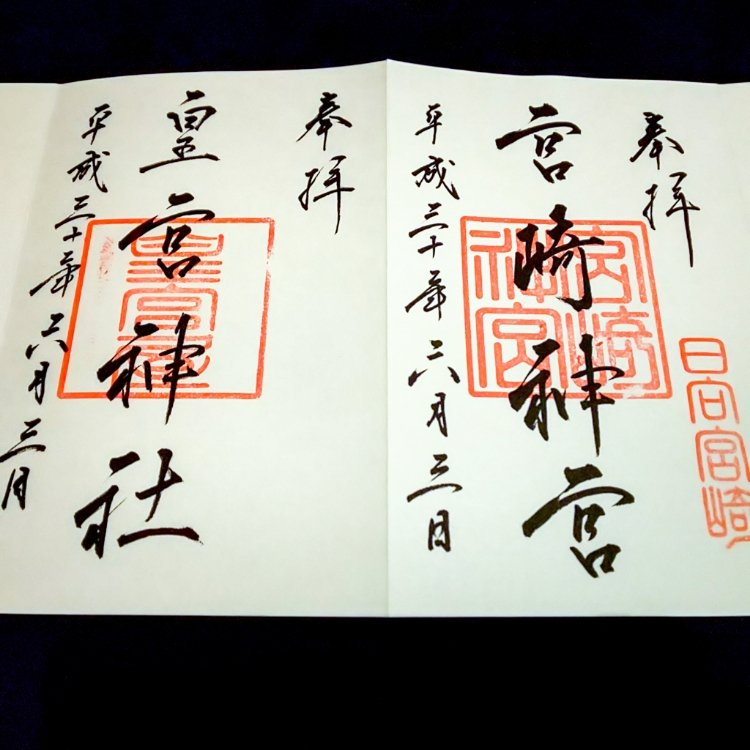 奉拝
宮崎神宮
平成三十年六月三日
宮崎神宮
日向宮崎
奉拝
皇宮神社
平成三十年六月三日